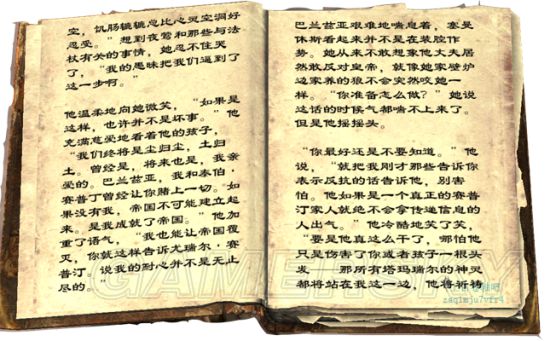 空，饥肠辘辘总比心灵空洞好
忍受。”想到夜莺和那些与法
杖有关的事情，她忍不住哭
了，“我的愚昧把我们逼到了
这一步啊。”
他温柔地向她微笑，“如果是
这样，也许并不是坏事。”他
充满慈爱地看着他的孩子，
“我们终将是尘归尘，土归
土。曾经是，将来也是，我亲
爱的。巴兰兹亚，我和泰伯·
赛普丁曾经让你赌上一切。如
果没有我，帝国不可能建立起
来。是我成就了帝国。”他加
重了语气，“我也能让帝国覆
灭，你就这样告诉尤瑞尔·赛
普汀。说我的耐心并不是无止
尽的。”
巴兰兹亚艰难地喘息着，塞曼
休斯看起来并不是在装腔作
势。她从来不敢想象他丈夫居
然敢反对皇帝，就像她家壁炉
边家养的狼不会突然咬她一
样。“你准备怎么做？”她说
这话的时候气都喘不上来了。
但是他摇摇头。
“你最好还是不要知道。”他
说，“就把我刚才那些告诉你
表示反抗的话告诉他，别害
怕。他如果是一个真正的赛普
汀家人就绝不会拿传递信息的
人出气。”他冷酷地笑了笑，
“要是他真这么干了，哪怕他
只是伤害了你或者孩子一根头
发，那所有塔玛瑞尔的神灵
都将站在我这一边，他将祈祷
GAMERSKY
zaqimju7vfr4